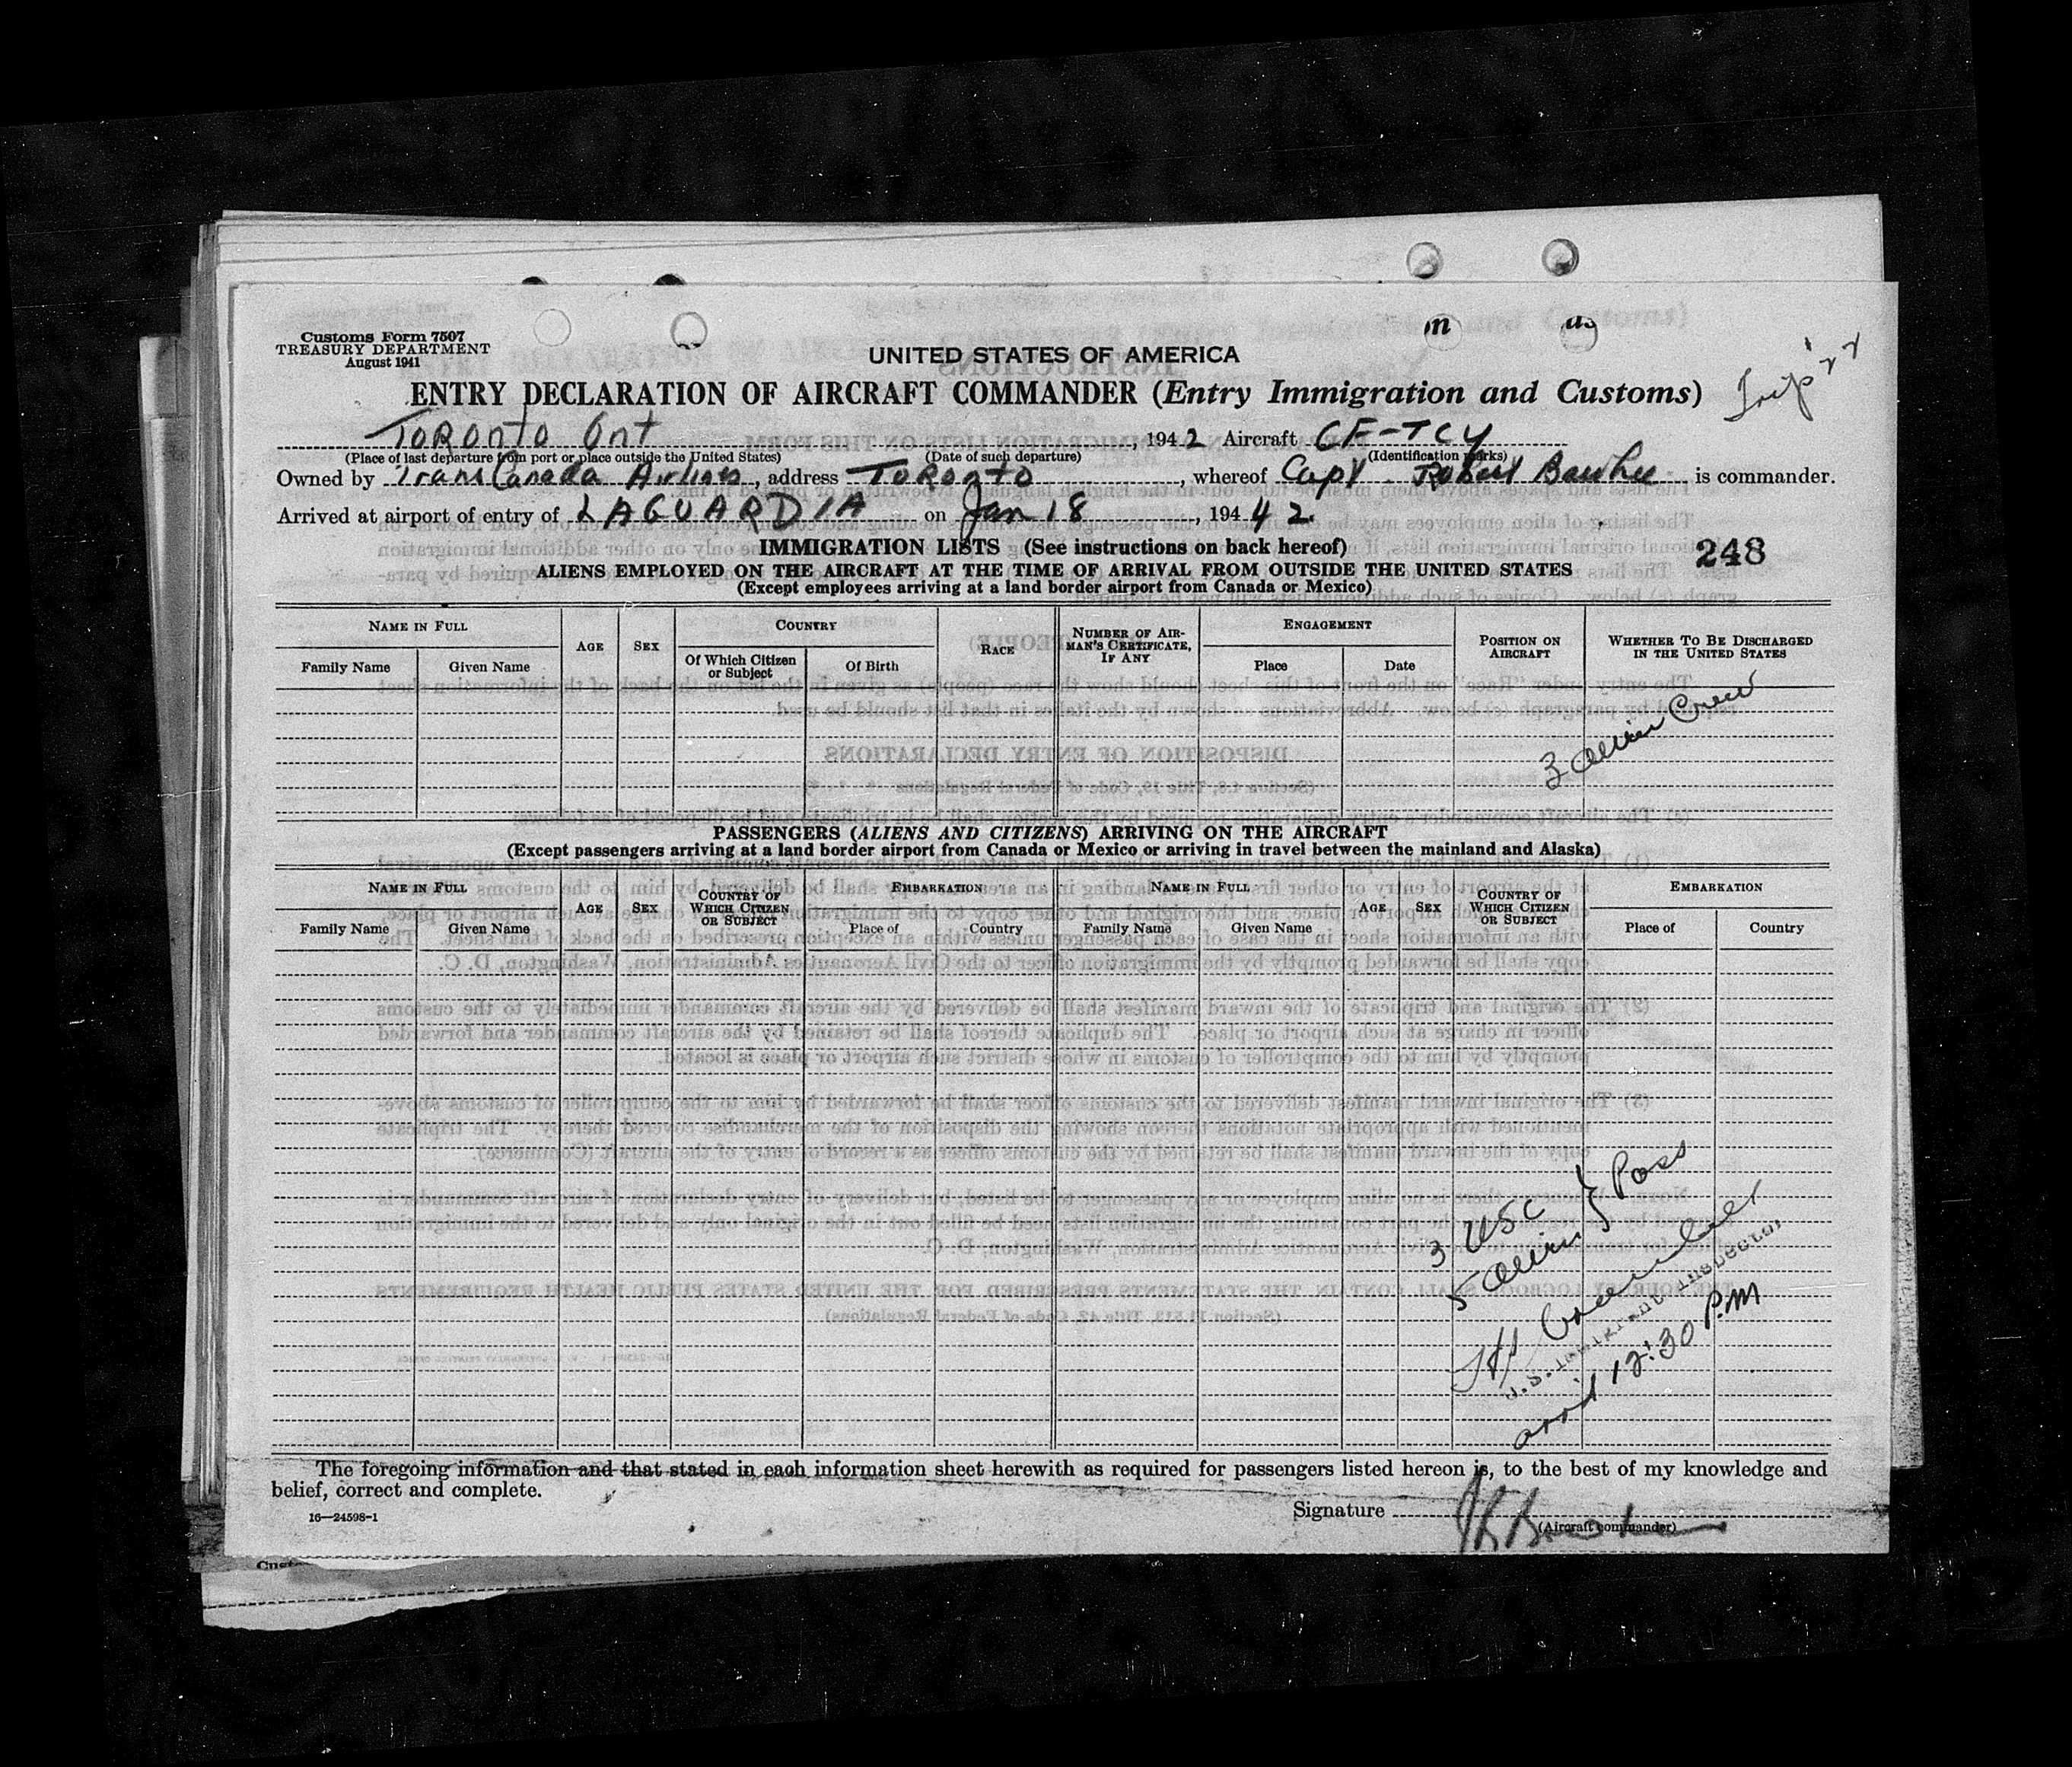 Customs Form 7507
TREASURY DEPARTMENT
August 1941
UNITED STATES OF AMERICA
ENTRY DECLARATION OF AIRCRAFT COMMANDER (Entry Immigration and Customs)
Trip 22
Toronto Ont, 1942 Aircraft CF-TCY
(Place of last departure from port or place outside the United States) (Date of such departure) (Identification marks)
Owned by Trans Canada Airlines, address Toronto, whereof Capt. Robert is commander.
Arrived at airport of entry of LAGUARDIA on Jan 18, 194 42
IMMIGRATION LISTS (See instructions on back hereof)
248
ALIENS EMPLOYED ON THE AIRCRAFT AT THE TIME OF ARRIVAL FROM OUTSIDE THE UNITED STATES
(Except employees arriving at a land border airport from Canada or Mexico)
NAME IN FULL AGE SEX COUNTRY RACE NUMBER OF AIRMAN'S CERTIFICATE, IF ANY ENGAGEMENT POSITION ON AIRCRAFT WHETHER TO BE DISCHARGED IN THE UNITED STATES
Family Name Given Name Of Which Citizen or Subject Of Birth Place Date
3 alien Crew
PASSENGERS (ALIENS AND CITIZENS) ARRIVING ON THE AIRCRAFT
(Except passengers arriving at a land border airport from Canada or Mexico or arriving in travel between the mainland and Alaska)
NAME IN FULL AGE SEX COUNTRY OF WHICH CITIZEN OR SUBJECT EMBARKATION NAME IN FULL AGE SEX COUNTRY OF WHICH CITIZEN OR SUBJECT EMBARKATION
Family Name Given Name Place of Country Family Name Given Name Place of Country
3 USC
5 alien } Pass
U.S. Immigrant Inspector
arrd 12:30 P.M
The foregoing information and that stated in each information sheet herewith as required for passengers listed hereon is, to the best of my knowledge and
belief, correct and complete.
16—24598-1
Signature
(Aircraft commander)